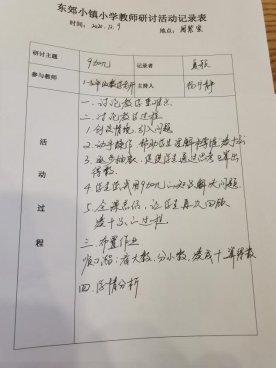 东郊小镇小学教师研讨活动记录表
时间：2020.12.9 地点：阅览室
研讨主题 9加几 记录者
参与教师 主持人 杨宁静
活动过程
一. 讨论教学重难点
二. 讨论教学过程
1. 创设情境，引入问题
2. 动手操作，帮助学生理解
3. 逐步抽象，促进学生通过思考
得数.
4. 学生尝试用9加几的知识解决问题.
5. 全课总结，让学生再次回顾
凑十的过程
三. 布置作业
顺口溜：看大数，分小数，凑成十，算得数
四. 学情分析